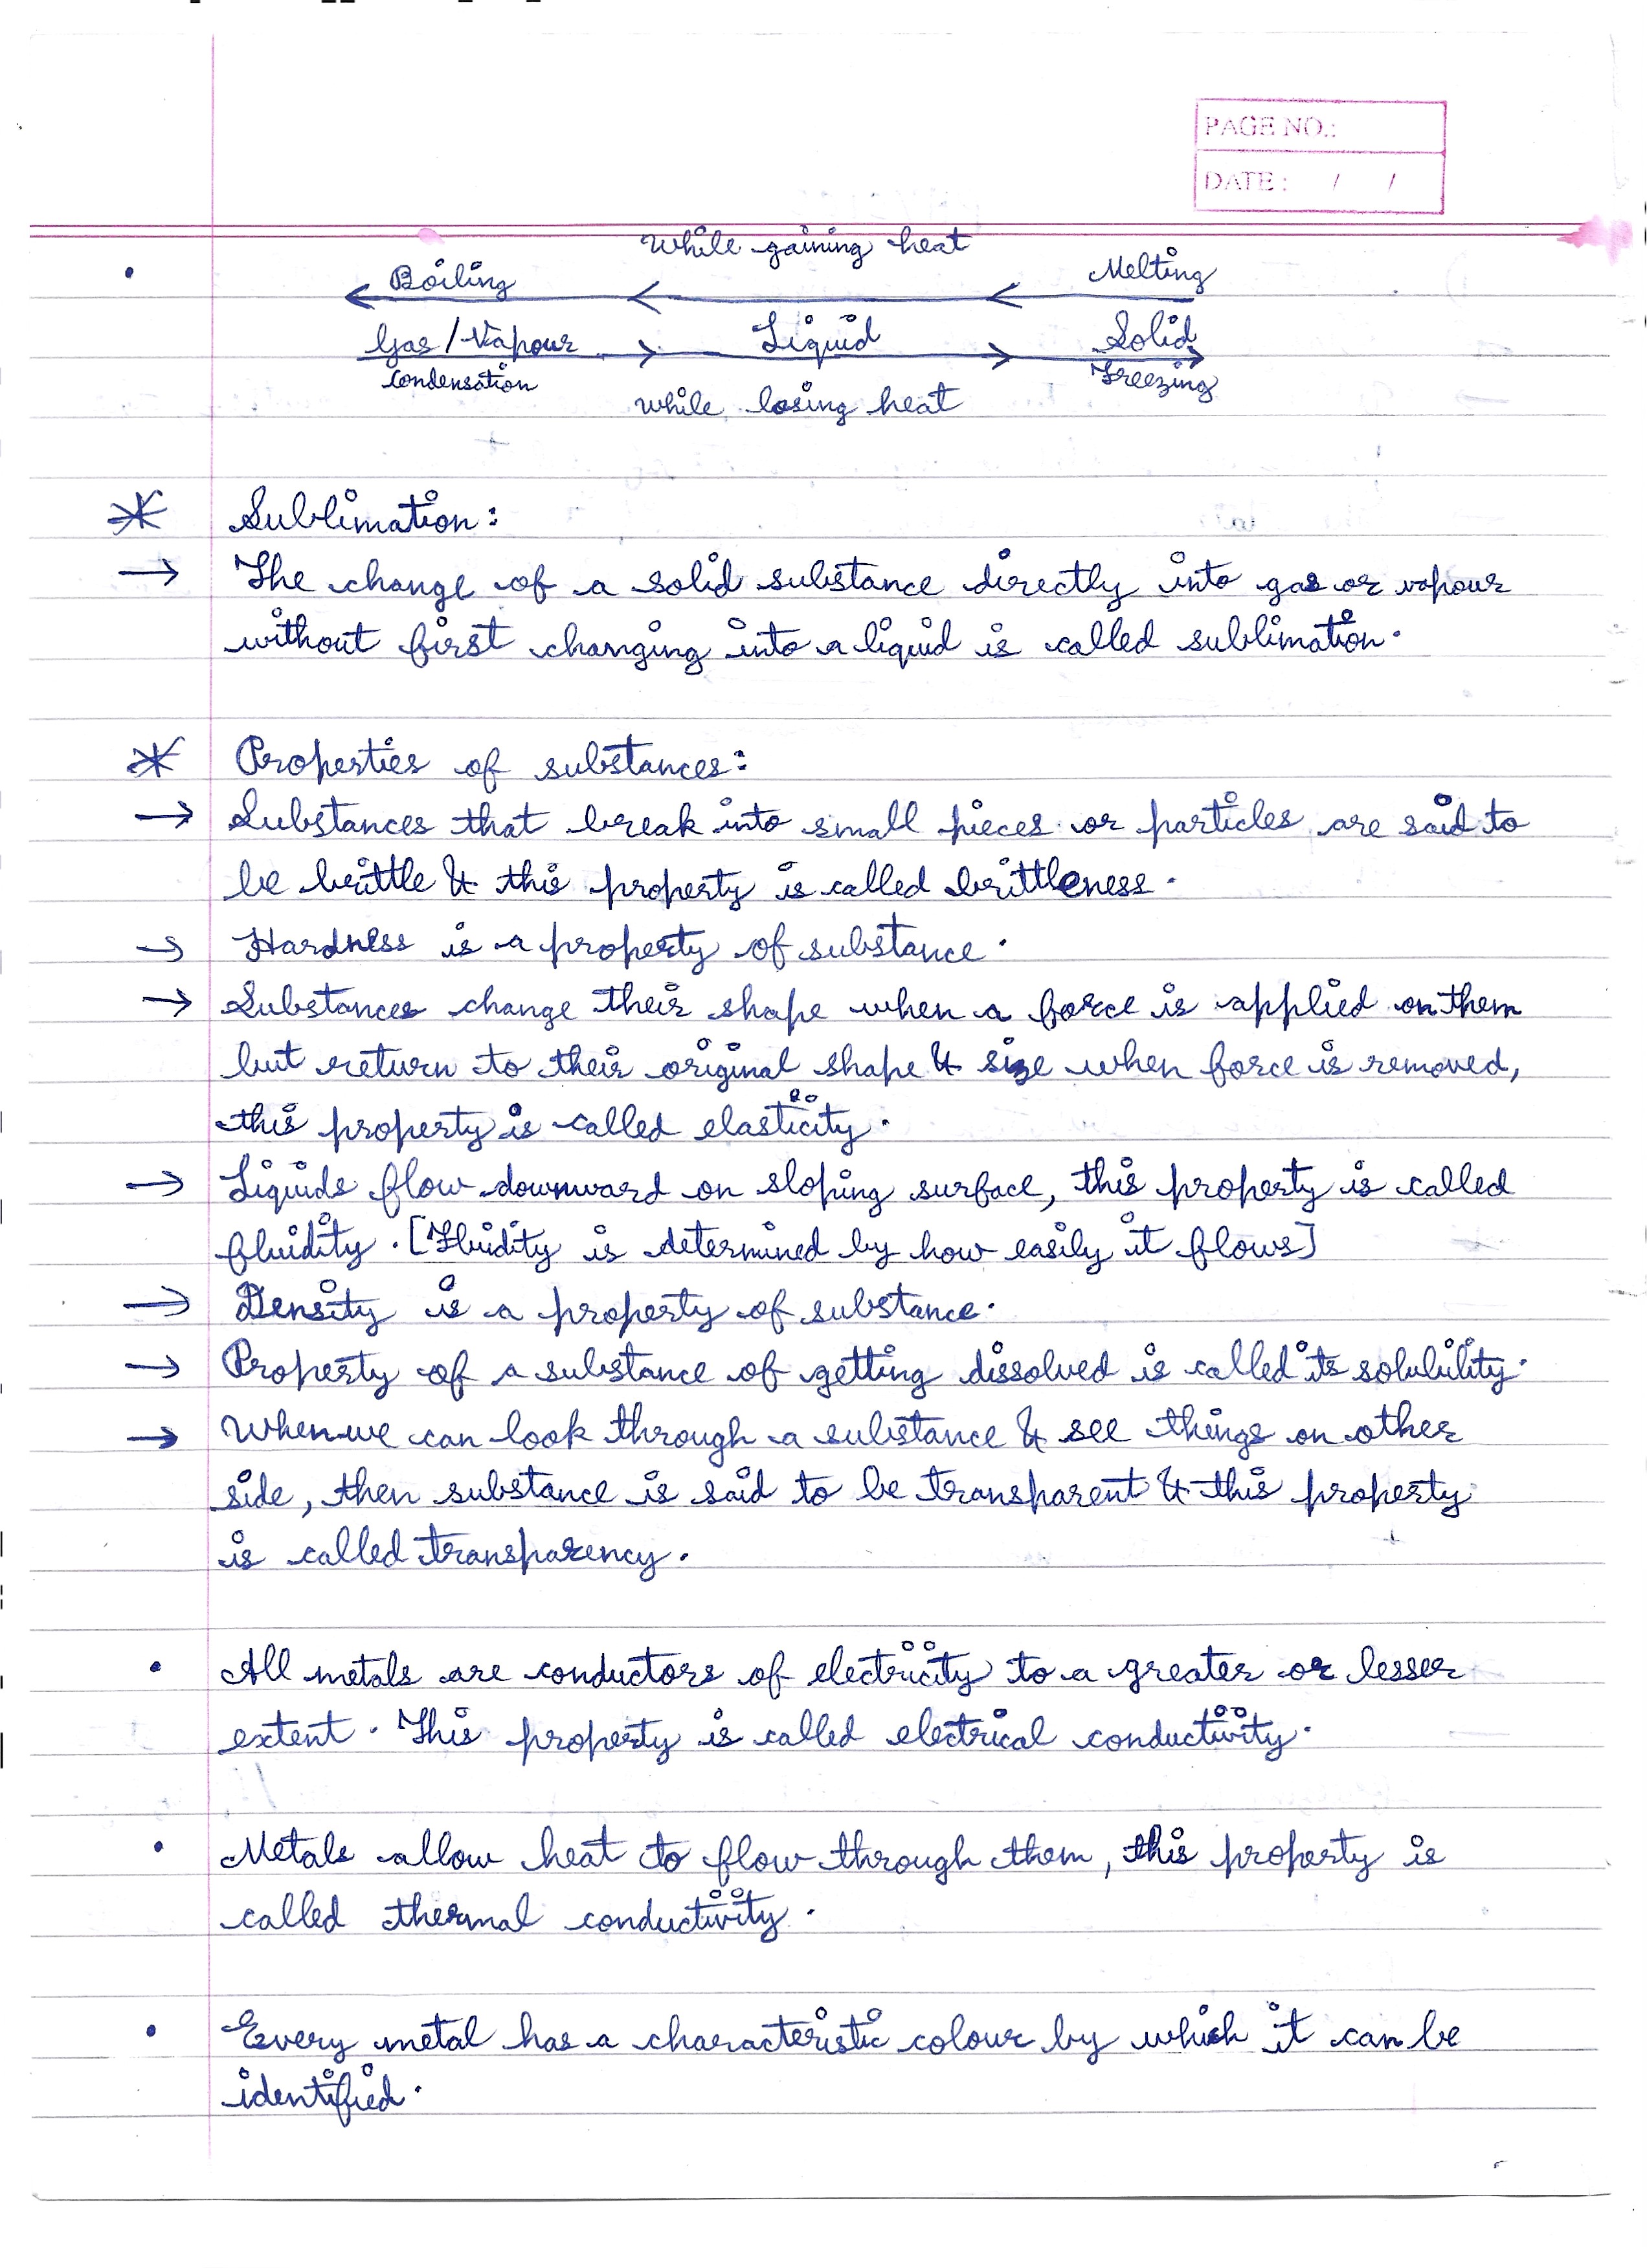 PAGE NO.:
DATE: / /
While gaining heat
• Boiling Melting
Gas/Vapour Liquid Solid
Condensation Freezing
while losing heat
* Sublimation:
→ The change of a solid substance directly into gas or vapour
without first changing into a liquid is called sublimation.
* Properties of substances:
→ Substances that break into small pieces or particles are said to
be brittle & this property is called brittleness.
→ Hardness is a property of substance.
→ Substances change their shape when a force is applied on them
but return to their original shape & size when force is removed,
this property is called elasticity.
→ Liquids flow downward on sloping surface, this property is called
fluidity. [Fluidity is determined by how easily it flows]
→ Density is a property of substance.
→ Property of a substance of getting dissolved is called its solubility.
→ When we can look through a substance & see things on other
side, then substance is said to be transparent & this property
is called transparency.
• All metals are conductors of electricity to a greater or lesser
extent. This property is called electrical conductivity.
• Metals allow heat to flow through them, this property is
called thermal conductivity.
• Every metal has a characteristic colour by which it can be
identified.